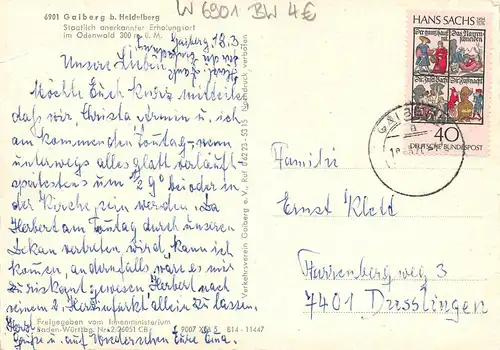 W 6901 BW 4€
6901 Gaiberg b. Heidelberg
Staatlich anerkannter Erholungsort
im Odenwald 300 m ü. M.
Gaiberg, 18.3
Unsere Lieben,
Möchte Euch kurz mitteilen
daß wir, Christa u. ich,
am kommenden Sonntag, wenn
unterwegs alles glatt verläuft
spätestens um 1/2 9° bei oder in
der Kirche sein werden. Da
Herbert am Sonntag durch unseren
Dekan vertreten wird, kann ich
kommen, andernfalls wäre es mir
zu riskant gewesen Herbert nach
seinem 2. Herzinfarkt allein zu lassen.
Herzl.
Grüße u. auf Wiedersehen Eure
Freigegeben vom Innenministerium
Baden-Württbg. Nr. 2/26051 CB
9007 X 5 814 - 11447
Verkehrsverein Gaiberg e. V., Ruf 06223-5315 Nachdruck verboten
HANS SACHS
40
DEUTSCHE BUNDESPOST
GAIBERG
a
Familie
Ernst
Furrenbergweg 3
7401 Dusslingen